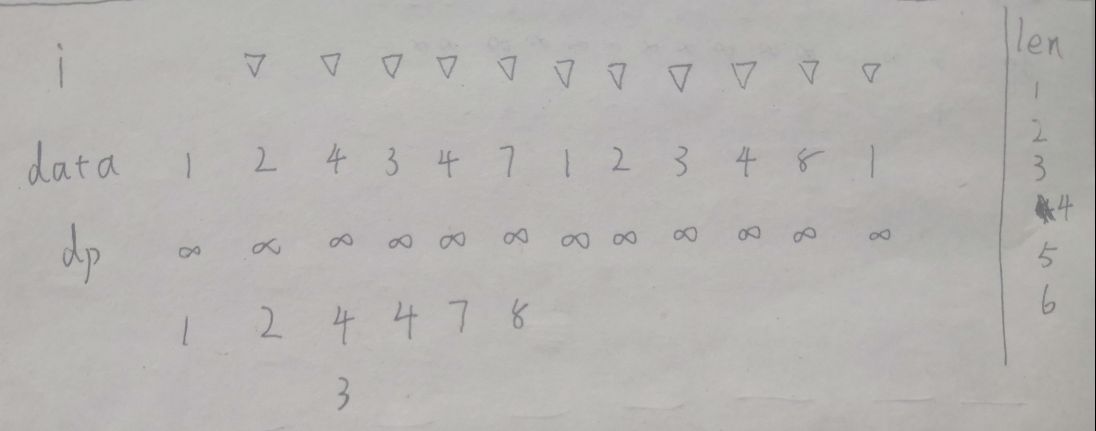 i ▽ ▽ ▽ ▽ ▽ ▽ ▽ ▽ ▽ ▽ ▽
data 1 2 4 3 4 7 1 2 3 4 8 1
dp ∞ ∞ ∞ ∞ ∞ ∞ ∞ ∞ ∞ ∞ ∞ ∞
1 2 4 4 7 8
3
len
1
2
3
4
5
6